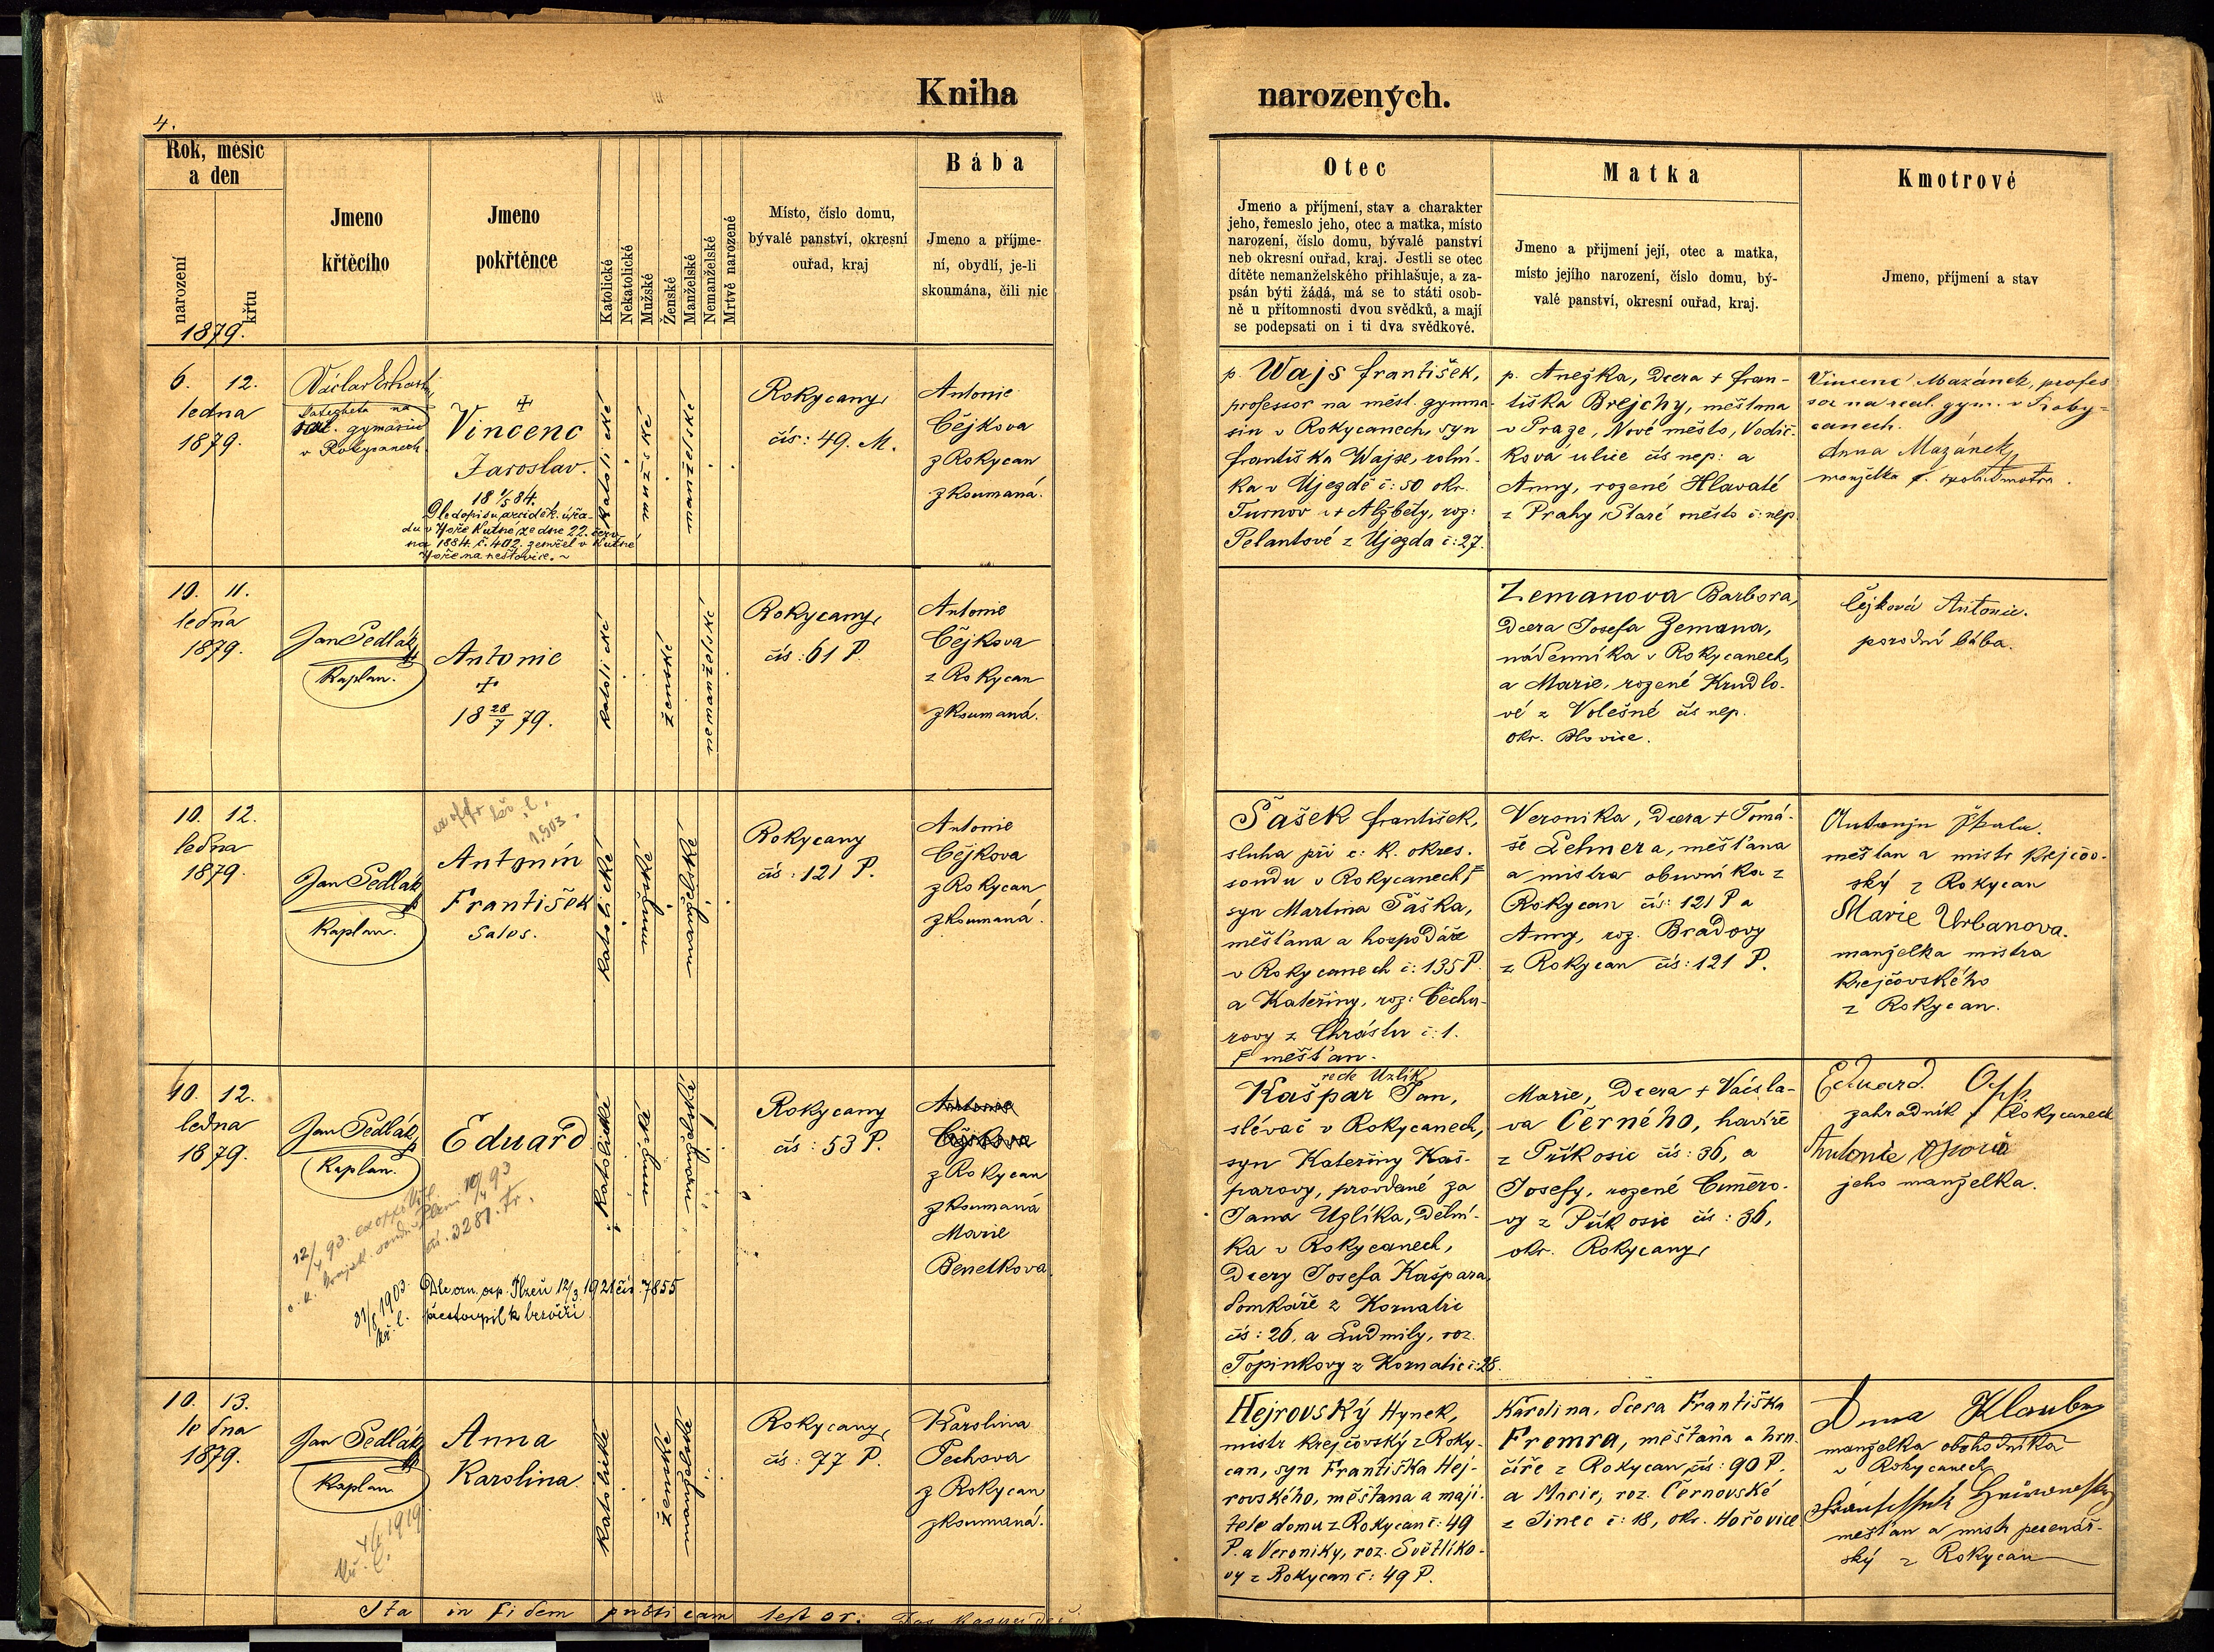 Kniha narozených.
4.
Rok, měsíc
a den
narození
křtu
1879.
Jmeno
křtěcího
Jmeno
pokřtěnce
Katolické
Nekatolické
Mužské
Ženské
Manželské
Nemanželské
Mrtvě narozené
Místo, číslo domu,
bývalé panství, okresní
ouřad, kraj
Bába
Jmeno a příjme-
ní, obydlí, je-li
skoumána, čili nic
Otec
Jmeno a příjmení, stav a charakter
jeho, řemeslo jeho, otec a matka, místo
narození, číslo domu, bývalé panství
neb okresní ouřad, kraj. Jestli se otec
dítěte nemanželského přihlašuje, a za-
psán býti žádá, má se to státi osob-
ně u přítomnosti dvou svědků, a mají
se podepsati on i ti dva svědkové.
Matka
Jmeno a přijmení její, otec a matka,
místo jejího narození, číslo domu, bý-
valé panství, okresní ouřad, kraj.
Kmotrové
Jmeno, příjmení a stav
6. 12.
ledna
1879.
Václav
katecheta na
real. gymnasiu
v Rokycanech
+
Vincenc
Jaroslav.
18 1/5 84.
Dle dopisu arciděk. úřa-
du v Hoře Kutné, ze dne 22. červ-
na 1884. č. 402. zemřel v Kutné
Hoře na neštovice.
katolické
mužské
manželské
Rokycany,
čís: 49. M.
Antonie
Čejkova
z Rokycan
zkoumaná.
p. Wajs František,
professor na měst. gymna-
siu v Rokycanech, syn
Františka Wajse, rolní-
ka v Újezdě č: 50 okr.
Turnov a + Alžběty, roz:
Pelantové z Újezda č: 27.
p. Anežka, dcera + Fran-
tiška Brejchy, měštana
v Praze, Nové město, Vodič-
kova ulice čís nep: a
Anny, rozené Hlavaté
z Prahy Staré město č: nep.
Vincenc Mazánek, profes
sor na real. gym. v Roky-
canech.
Anna Mazánek,
manželka
10. 11.
ledna
1879.
Jan Sedlák
Kaplan.
Antonie
+
18 28/7 79.
katolické
ženské
nemanželské
Rokycany,
čís: 61 P.
Antonie
Čejkova
z Rokycan
zkoumaná.
Zemanova Barbora,
dcera Josefa Zemana,
nádenníka v Rokycanech,
a Marie, rozené Krudlo-
vé z Volešné čís nep.
okr. Blovice.
Čejková Antonie.
porodní bába.
10. 12.
ledna
1879.
Jan Sedlák
Kaplan.
1903.
Antonín
František
Sales.
katolické
mužské
manželské
Rokycany
čís: 121 P.
Antonie
Čejkova
z Rokycan
zkoumaná.
Šašek František,
sluha při c: k. okres.
soudu v Rokycanech, F
syn Martina Šaška,
měšťana a hospodáře
v Rokycanech č: 135 P.
a Kateřiny, roz: Čechu-
rovy z Chrástu č: 1.
F měšťan.
Veronika, dcera + Tomá-
še Lehnera, měšťana
a mistra obuvníka z
Rokycan čís: 121 P a
Anny, roz. Bradovy
z Rokycan čís: 121 P.
měštan a mistr krejčov-
ský z Rokycan
Marie Urbanova.
manželka mistra
krejčovského
z Rokycan.
10. 12.
ledna
1879.
Jan Sedlák
Kaplan.
Eduard
12/4 93.
10/4 93
čís. 3281. tr.
31/8 1903.
kř. l.
Dle ozn. osp. Plzeň 12/3. 1921 čís. 7855
přestoupil k bezvěří.
katolické
mužské
manželské
Rokycany
čís: 53 P.
Antonie
Čejkova
z Rokycan
zkoumaná
Marie
Benetkova.
recte Uzlík
Kašpar Jan,
slévač v Rokycanech,
syn Kateřiny Kaš-
parovy, provdané za
Jana Uzlíka, dělní-
ka v Rokycanech,
dcery Josefa Kašpara,
domkáře z Kornatic
čís: 26, a Ludmily, roz.
Topinkovy z Kornatic č: 28.
Marie, dcera + Václa-
va Černého, havíře
z Příkosic čís: 36, a
Josefy, rozené Cuměro-
vy z Příkosic čís: 36,
okr. Rokycany,
Eduard
zahradník v Rokycanech
Antonie
jeho manželka.
10. 13.
ledna
1879.
Jan Sedlák
Kaplan
1919.
kř. l.
Anna
Karolina.
katolické
ženské
manželské
Rokycany,
čís: 77 P.
Karolina
Pechova
z Rokycan
zkoumaná.
Hejrovský Hynek,
mistr krejčovský z Roky-
can, syn Františka Hej-
rovského, měšťana a maji-
tele domu z Rokycan č: 49
P. a Veroniky, roz. Světlíko-
vy z Rokycan č: 49 P.
Karolina, dcera Františka
Fremra, měšťana a hrn-
číře z Rokycan, čís: 90 P.
a Marie, roz. Černovské
z Jinec č: 18, okr. Hořovice
Anna Klauber
manželka obchodníka
v Rokycanech
měšťan a mistr perníkář-
ský z Rokycan
Ita in fidem publicam testor.